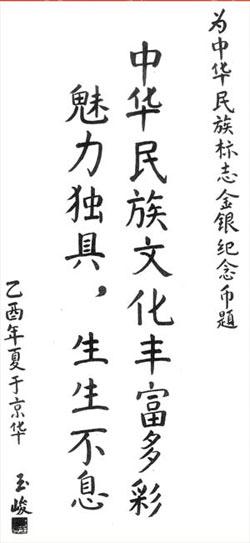 为中华民族标志金银纪念币题
中华民族文化丰富多彩
魅力独具，生生不息
乙酉年夏于京华
玉峻